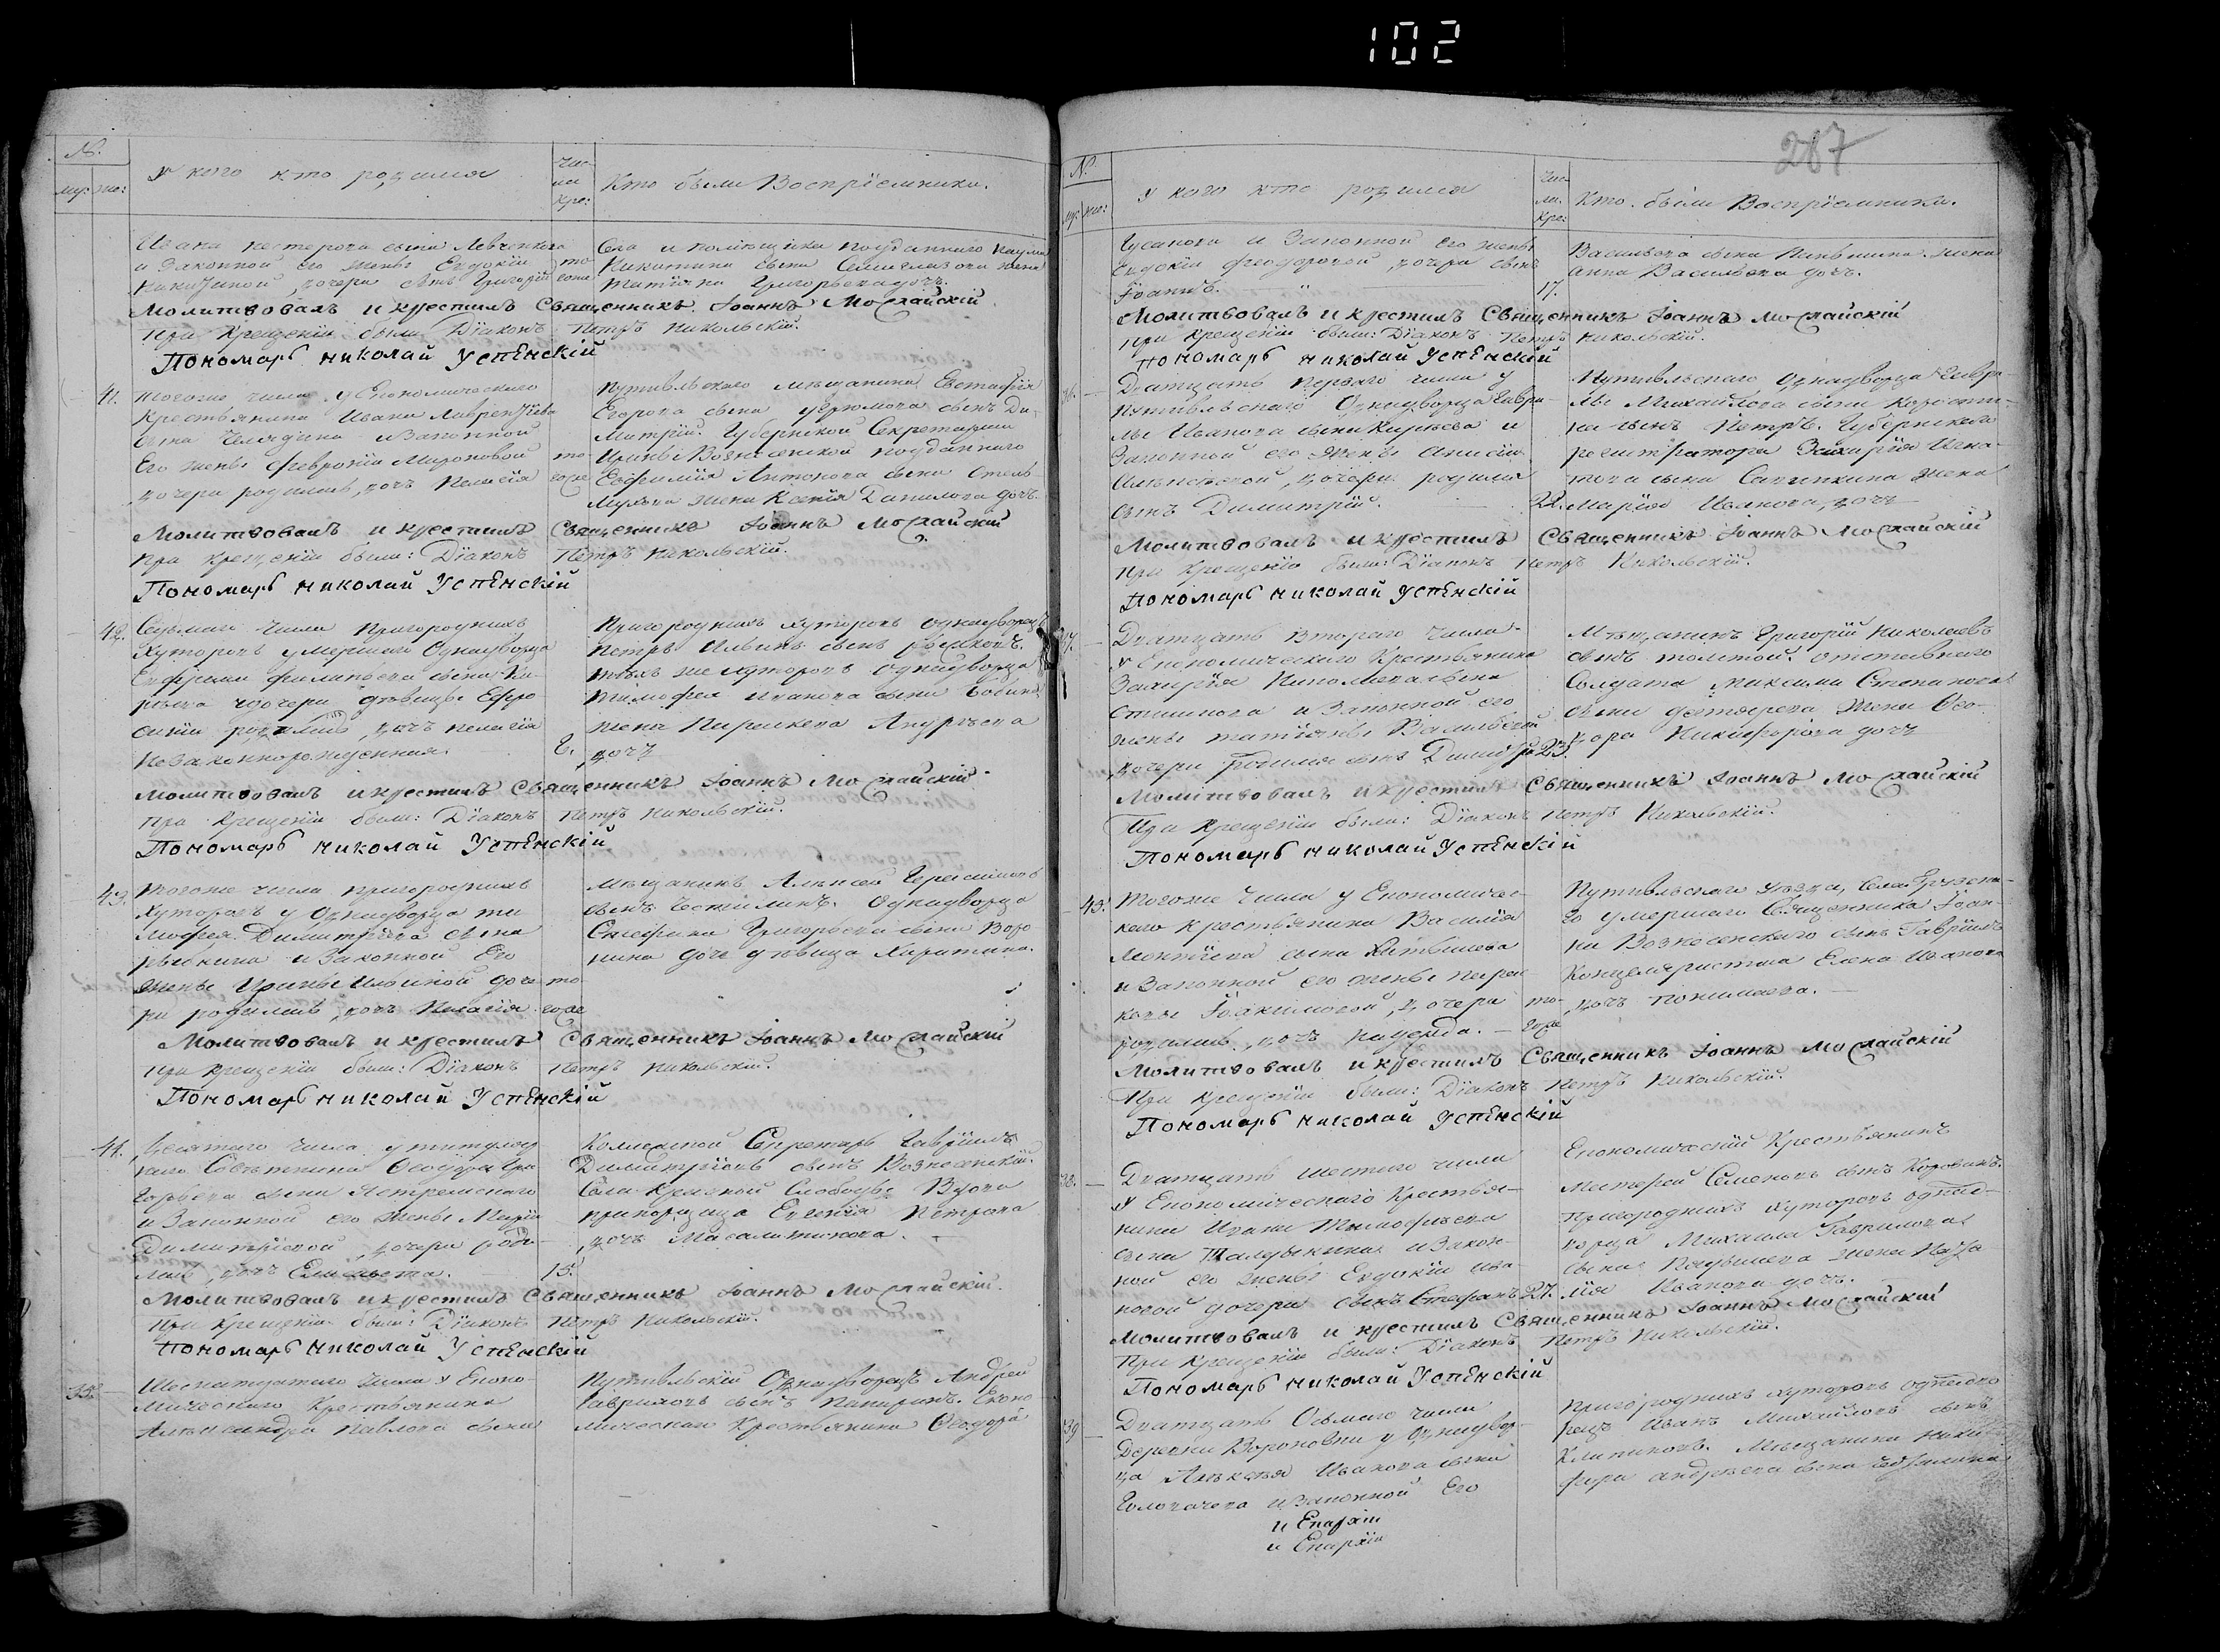 102
№.
му: же:
У кого кто родился
Чис-
ла
кре:
Кто были Воспрiемники.
Ивана Нестерова сына Левченкова
и Законной его жены Евдокiи
Никитиной, дочери сынъ Григорiй
то
гоже
Села и помѣщика подданнаго Наума
Никитина сына жена
Татiяна Григорьева дочь.
Молитвовалъ и крестилъ Священникъ Iоаннъ Можайскiй
При Крещенiи были: Дiаконъ Петръ Никольскiй.
Пономарь Николай Успенскiй
41.
Тогоже числа у Економическаго
Крестьянина Ивана Лаврентiева
сына Челядина и Законной
Его жены Февронiи Мироновой
дочери родилась, дочь Пелагiя
то
гоже
Путивльскаго мѣщанина Евстафiя
Егорова сына Угрюмова сынъ Ди-
митрiй. Губернской Секретарши
Ирины Вознесенской подданнаго
Евфимiя Антонова сына
жена Ксенiя Данилова дочь.
Молитвовалъ и крестилъ Священникъ Iоаннъ Можайскiй
При Крещенiи были: Дiаконъ Петръ Никольскiй.
Пономарь Николай Успенскiй
42.
Седьмаго числа Пригородныхъ
Хуторовъ умершаго Однодворца
Ефрема Филипьева сына Ки-
рѣева дочери дѣвицы Ефро
синiи родилась, дочь Пелагiя
Незаконнорожденная.
8.
Пригородныхъ хуторовъ однодворецъ
Петръ Ильинъ сынъ
тѣхъ же хуторовъ однодворца
Тимофея Иванова сына
жена Параскева Андрѣева
дочь
Молитвовалъ и крестилъ Священникъ Iоаннъ Можайскiй
При Крещенiи были: Дiаконъ Петръ Никольскiй.
Пономарь Николай Успенскiй
43.
Тогоже числа пригородныхъ
Хуторовъ у Однодворца Ти
мофея Димитрiева сына
и Законной Его
жены Ирины Ильиной доче
ри родилась, дочь Пелагiя
то
гоже
Мѣщанинъ Алексѣй
сынъ Однодворца
Стефана Григорьева сына Воро
нина дочь дѣвица Харитина.
Молитвовалъ и крестилъ Священникъ Iоаннъ Можайскiй
При Крещенiи были: Дiаконъ Петръ Никольскiй.
Пономарь Николай Успенскiй
44.
Десятаго числа у титуляр
наго Совѣтника Феодора Гри
горьева сына Ястремскаго
и Законной его жены Марiи
Димитрiевой, дочери роди-
лась, дочь Елисавета.
15.
Колежской Секретарь Гаврiилъ
Димитрiевъ сынъ Вознесенскiй.
Села Красной Слободы Вдова
прапорщица Евгенiя Петрова
дочь Масалитинова.
Молитвовалъ и крестилъ Священникъ Iоаннъ Можайскiй
При Крещенiи были: Дiаконъ Петръ Никольскiй.
Пономарь Николай Успенскiй
35.
Шеснатцатаго числа у Еконо-
мическаго Крестьянина
Александра Павлова сына
Путивльскiй Однодворецъ Андрей
Гавриловъ сынъ Еконо-
мическаго Крестьянина Феодора
287
N.
му: же:
У кого кто родился
Чис-
ла.
кре:
Кто были Воспрiемники.
и Законной его жены
Евдокiи Феодоровой, дочери сынъ
Iоаннъ.
17.
Васильева сына жена
Анна Васильева дочь.
Молитвовалъ и крестилъ Священникъ Iоаннъ Можайскiй
При Крещенiи были: Дiаконъ Петръ Никольскiй.
Пономарь Николай Успенскiй
36.
Дватцать перваго числа у
Путивльскаго Однодворца Гаври-
лы Иванова сына Кирѣева и
Законной его жены Анисiи
дочери родился
сынъ Димитрiй.
22.
Путивльскаго Однодворца Гаври-
лы Михайлова сына
сынъ Петръ. Губернскаго
регистратора Захарiя Игна-
това сына жена
Марiя Иванова дочь
Молитвовалъ и крестилъ Священникъ Iоаннъ Можайскiй
При Крещенiи были: Дiаконъ Петръ Никольскiй.
Пономарь Николай Успенскiй
37.
Дватцать втораго числа
у Економическаго Крестьянина
Захарiя сына
и Законной его
жены Татiяны Васильевой
дочери родился сынъ Димитрiй
23.
Мѣщанинъ Григорiй Николаевъ
сынъ Толстой. Отставнаго
Солдата Максима Степанова
сына Дегтярева жена Фео-
дора Никифорова дочь
Молитвовалъ и крестилъ Священникъ Iоаннъ Можайскiй
При Крещенiи были: Дiаконъ Петръ Никольскiй.
Пономарь Николай Успенскiй
45.
Тогоже числа у Економичес-
каго Крестьянина Василiя
Леонтiева сына
и Законной его жены Парас
кевы Iоакимовой, дочери
родилась, дочь Надежда.
то-
гоже
Путивльскаго уѣзда, Села
умершаго Священника Iоан-
на Вознесенскаго сынъ Гаврiилъ
Канцеляристша Елена Иванова
дочь Понимаева.
Молитвовалъ и крестилъ Священникъ Iоаннъ Можайскiй
При Крещенiи были: Дiаконъ Петръ Никольскiй.
Пономарь Николай Успенскiй
38.
Дватцать шестаго числа
у Економическаго Крестья-
нина Ивана Тимофѣева
сына Талдыкина и Закон-
ной его жены Евдокiи Ива-
новой дочери сынъ Стефанъ
27.
Економическiй Крестьянинъ
Матфей Семеновъ сынъ
Пригородныхъ хуторовъ однод-
ворца Михаила Гаврилова
сына жена Ната
лiя Иванова дочь.
Молитвовалъ и крестилъ Священникъ Iоаннъ Можайскiй
При Крещенiи были: Дiаконъ Петръ Никольскiй.
Пономарь Николай Успенскiй
39
Дватцать Осьмаго числа
Деревни Вороновки у Однодвор-
ца Алексѣя Иванова сына
Головачева и Законной Его
Пригородныхъ хуторовъ однодво
рецъ Иванъ Михайловъ сынъ
Мѣщанина Ники
фора Андрѣева сына
и Епархiи
и Епархiи